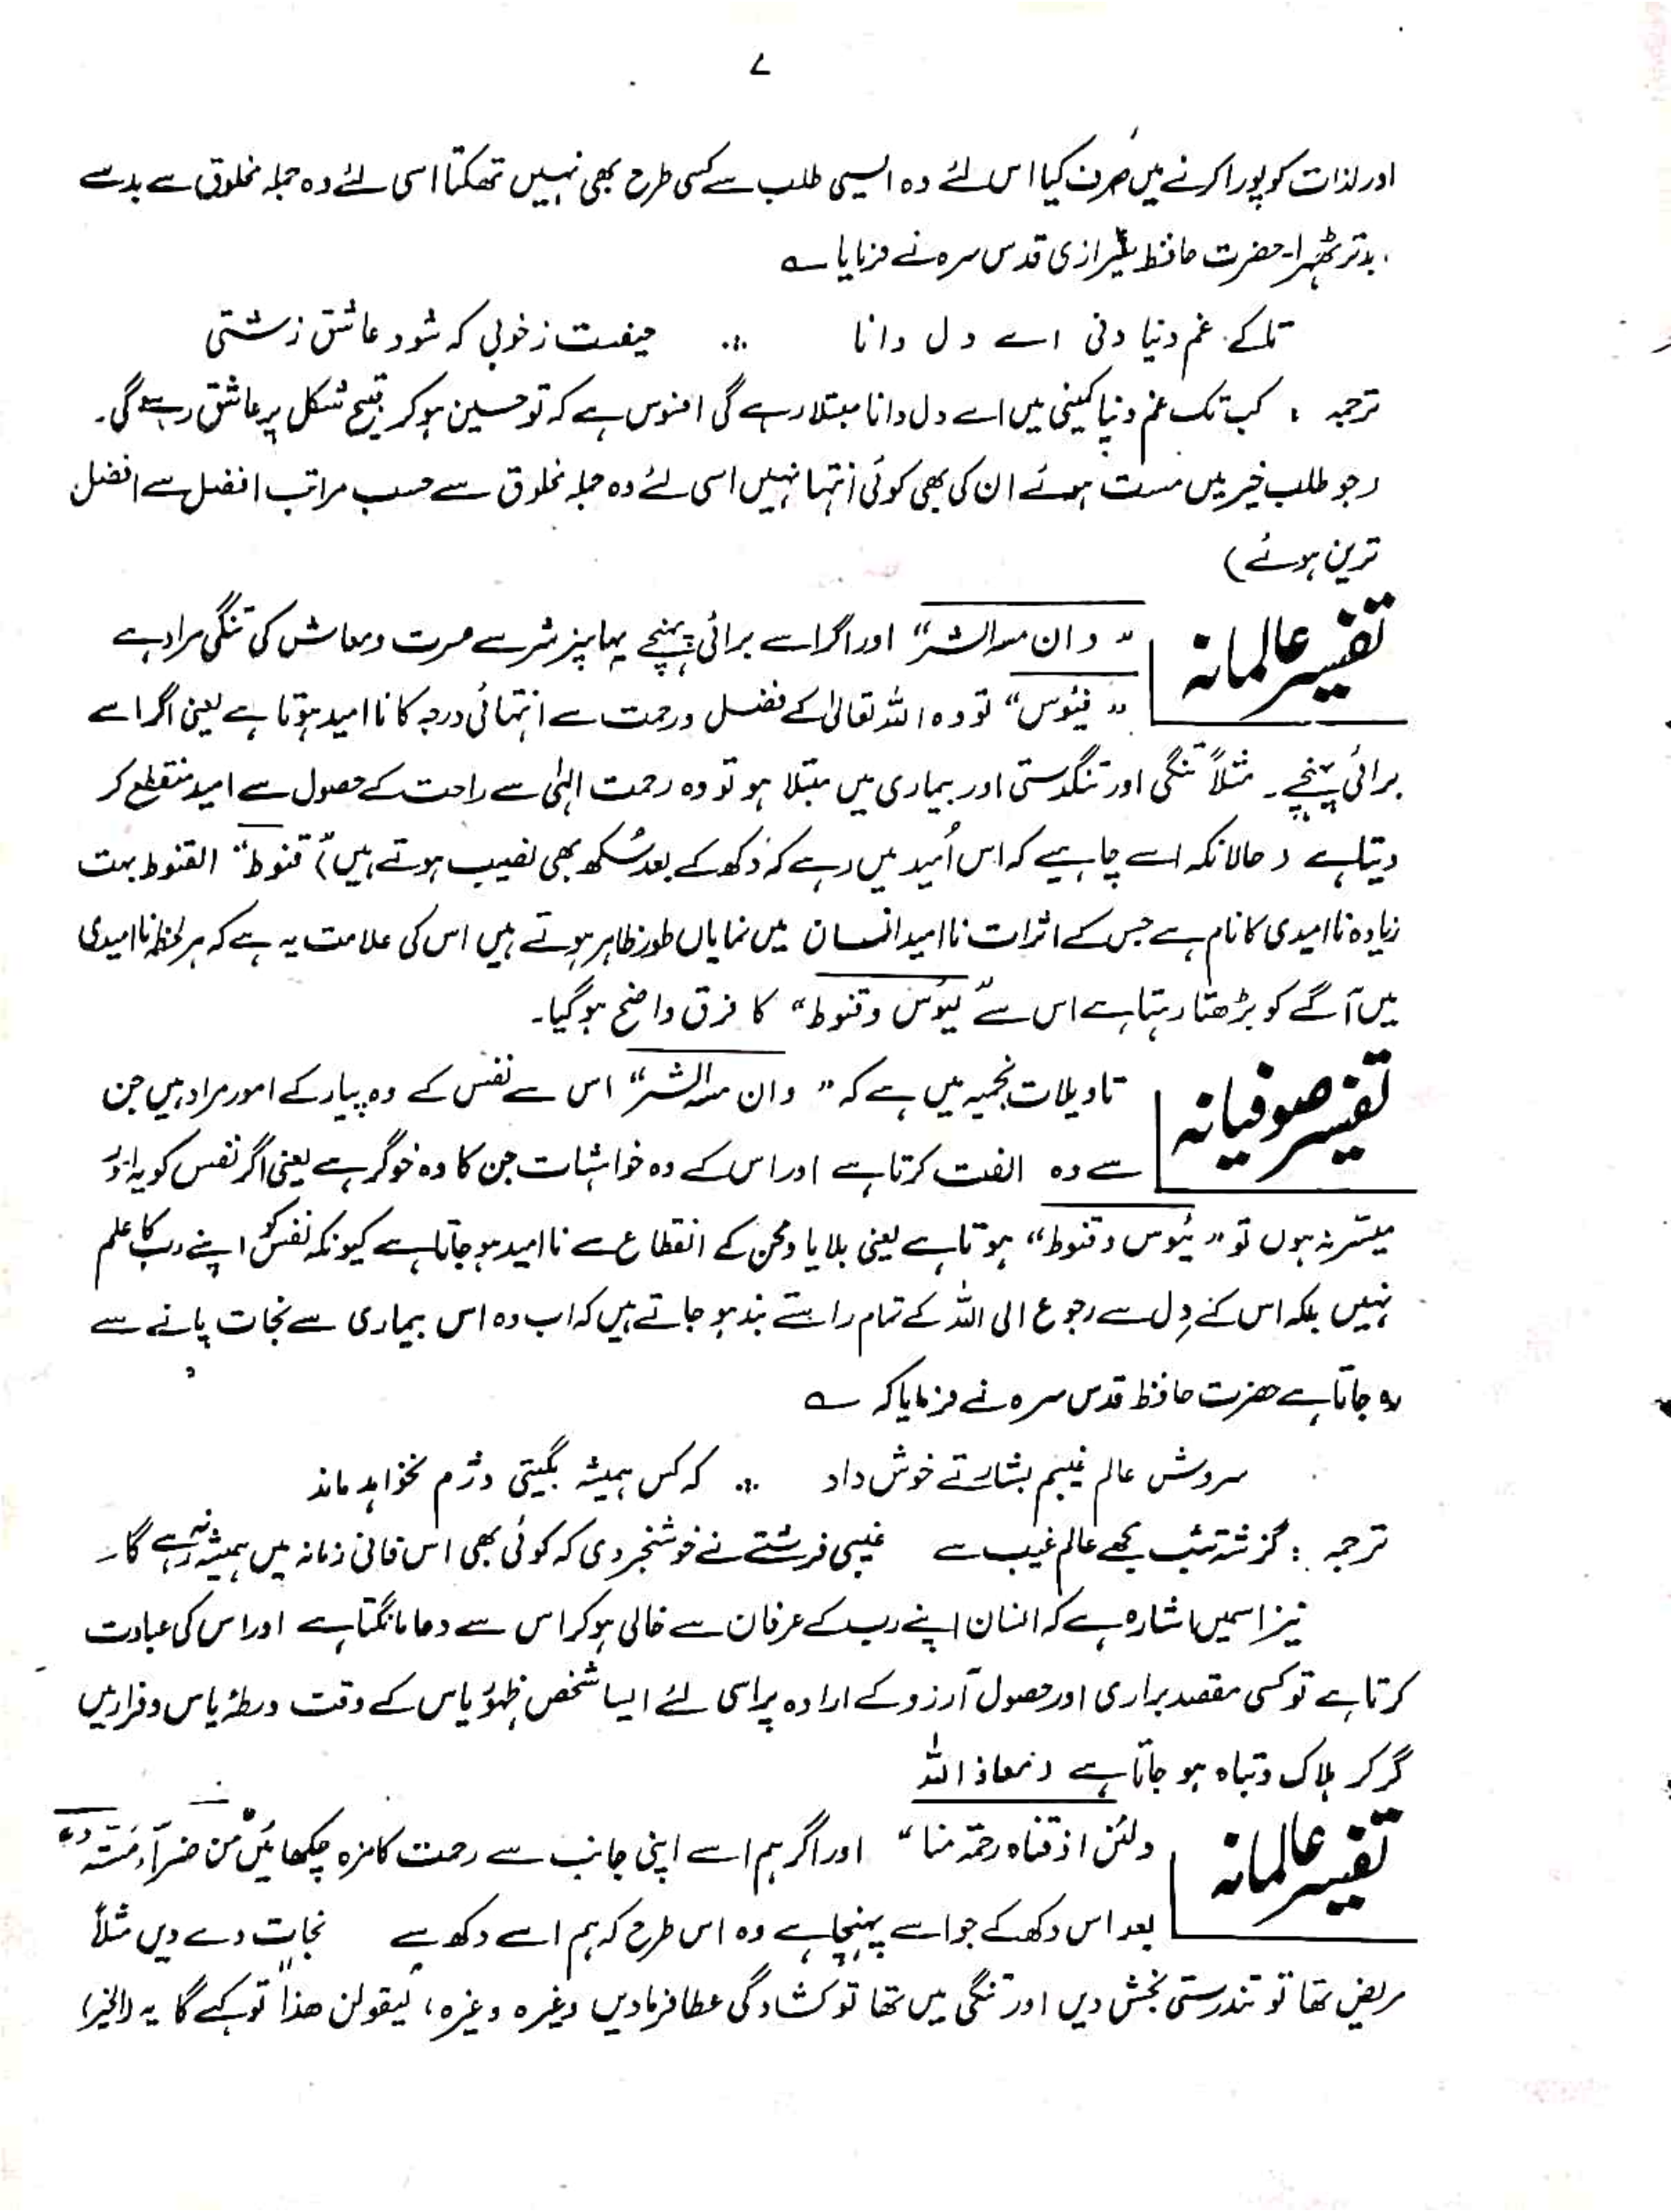 ۷
اور لذات کو پورا کرنے میں صُرف کیا اس لئے وہ ایسی طلب سے کسی طرح بھی نہیں تھکتا اسی لئے وہ جملہ مخلوق سے بد سے
بدتر ٹھہرا۔ حضرت حافظ شیرازی قدس سرہ نے فرمایا ؎
تاکے غم دنیا دنی اے دل دانا ∴ حیفست زخوبی کہ شود عاشق زشتی
ترجمہ : کب تک غم دنیا کمینی میں اے دل دانا مبتلا رہے گی افسوس ہے کہ تو حسین ہو کر قبیح شکل پر عاشق رہے گی۔
(جو طلب خیر میں مست ہوئے ان کی بھی کوئی انتہا نہیں اسی لئے وہ جملہ مخلوق سے حسب مراتب افضل سے افضل
ترین ہوئے)
تفسیر عالمانہ
”وان مسہ الشر“ اور اگر اسے برائی پہنچے یہاں پر شر سے عسرت ومعاش کی تنگی مراد ہے
”فیئوس“ تو وہ اللہ تعالیٰ کے فضل ورحمت سے انتہائی درجہ کا ناامید ہوتا ہے یعنی اگر اسے
برائی پہنچے۔ مثلاً تنگی اور تنگدستی اور بیماری میں مبتلا ہو تو وہ رحمت الہٰی سے راحت کے حصول سے امید منقطع کر
دیتا ہے (حالانکہ اسے چاہیے کہ اس اُمید میں رہے کہ دُکھ کے بعد سُکھ بھی نصیب ہوتے ہیں) ”قنوط“ القنوط بہت
زیادہ ناامیدی کا نام ہے جس کے اثرات ناامید انسان میں نمایاں طور ظاہر ہوتے ہیں اس کی علامت یہ ہے کہ ہر لحظہ ناامیدی
میں آگے کو بڑھتا رہتا ہے اس سے ”یئوس وقنوط“ کا فرق واضح ہو گیا۔
تفسیر صوفیانہ
تاویلات نجمیہ میں ہے کہ ”وان مسہ الشر“ اس سے نفس کے وہ پیار کے امور مراد ہیں جن
سے وہ الفت کرتا ہے اور اس کے وہ خواہشات جن کا وہ خوگر ہے یعنی اگر نفس کو یہ امور
میسّر نہ ہوں تو ”یئوس وقنوط“ ہوتا ہے یعنی بلایا ومحن کے انقطاع سے ناامید ہو جاتا ہے کیونکہ نفس کو اپنے رب کا علم
نہیں بلکہ اس کے دِل سے رجوع الی اللہ کے تمام راستے بند ہو جاتے ہیں کہ اب وہ اس بیماری سے نجات پانے سے
رہ جاتا ہے حضرت حافظ قدس سرہ نے فرمایا کہ ؎
سروش عالم غیبم بشارتے خوش داد ∴ کہ کس ہمیشہ بگیتی دژم نخواہد ماند
ترجمہ : گزشتہ شب مجھے عالم غیب سے غیبی فرشتے نے خوشخبر دی کہ کوئی بھی اس فانی زمانہ میں ہمیشہ نہ رہے گا۔
نیز اسمیں اشارہ ہے کہ انسان اپنے رب کے عرفان سے خالی ہو کر اس سے دعا مانگتا ہے اور اس کی عبادت
کرتا ہے تو کسی مقصد براری اور حصول آرزو کے ارادہ پر اسی لئے ایسا شخص ظہور یاس کے وقت ورطۂ یاس وفرار میں
گر کر ہلاک وتباہ ہو جاتا ہے (نعاذ اللہ
تفسیر عالمانہ
ولئن اذقناہ رحمۃ منا“ اور اگر ہم اسے اپنی جانب سے رحمت کا مزہ چکھائیں ”من ضرآء مستہ“
بعد اس دکھ کے جو اسے پہنچا ہے وہ اس طرح کہ ہم اسے دکھ سے نجات دے دیں مثلاً
مریض تھا تو تندرستی بخش دیں اور تنگی میں تھا تو کشادگی عطا فرمادیں وغیرہ وغیرہ، لیقولن ھذا تو کہے گا یہ (الخیر)